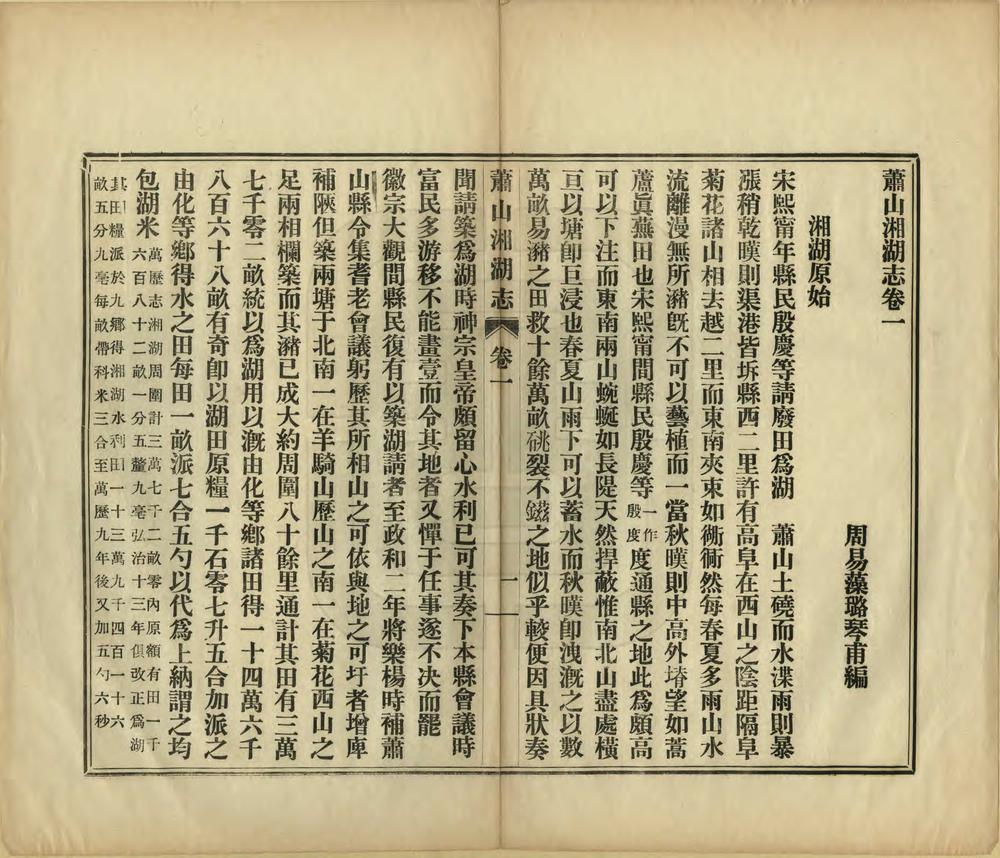 蕭山湘湖志卷一
周易藻璐琴甫編
湘湖原始
宋熙甯年縣民殷慶等請廢田爲湖　蕭山土磽而水渫雨則暴
漲稍乾暵則渠港皆坼縣西二里許有高阜在西山之陰距隔阜
菊花諸山相去越二里而東南夾束如衖衕然每春夏多雨山水
流離漫無所瀦旣不可以藝植而一當秋暵則中高外塉望如蒿
蘆眞蕪田也宋熙甯間縣民殷慶等一作殷度度通縣之地此爲頗高
可以下注而東南兩山蜿蜒如長隄天然捍蔽惟南北山盡處橫
亘以塘卽巨浸也春夏山雨下可以蓄水而秋暵卽洩漑之以數
萬畝易瀦之田救十餘萬畝硗裂不鎡之地似乎較便因具狀奏
蕭山湘湖志　卷一　一
聞請築爲湖時神宗皇帝頗留心水利已可其奏下本縣會議時
富民多游移不能畫壹而令其地者又憚于任事遂不决而罷
徽宗大觀間縣民復有以築湖請者至政和二年將樂楊時補蕭
山縣令集耆老會議躬歷其所相山之可依與地之可圩者增庳
補陿但築兩塘于北南一在羊騎山歷山之南一在菊花西山之
足兩相欄築而其瀦已成大約周圍八十餘里通計其田有三萬
七千零二畝統以爲湖用以漑由化等鄉諸田得一十四萬六千
八百六十八畝有奇卽以湖田原糧一千石零七升五合加派之
由化等鄉得水之田每田一畝派七合五勺以代爲上納謂之均
包湖米萬歷志湘湖周圍計三萬七千二畝零內原額有田一千
六百八十二畝一分五釐九毫弘治十三年俱改正爲湖
其田糧派於九鄉得湘湖水利田一十三萬九千四百一十六
畝五分九毫每畝帶科米三合至萬歷九年後又加五勺六秒